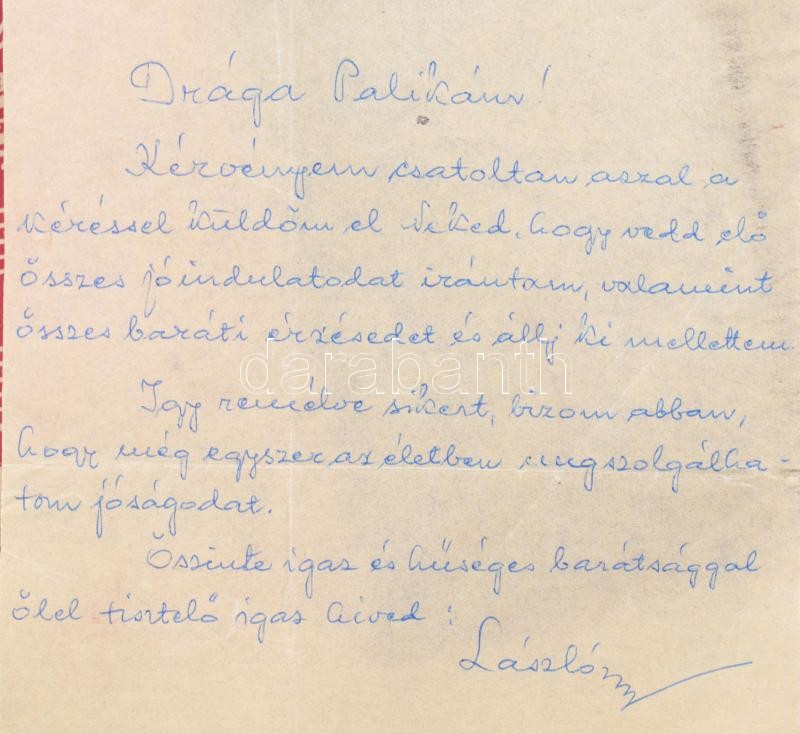 Drága Palikám!
Kérvényem csatoltan aszal a
kéréssel küldöm el Neked, hogy vedd elő
összes jóindulatodat irántam, valamint
összes baráti érzésedet és állj ki mellettem.
darabanth
Igy remélve sikert, bizom abban,
hogy még egyszer az életben megszolgálha-
tom jóságodat.
Őszinte igaz és hűséges barátsággal
ölel tisztelő igaz hived :
László